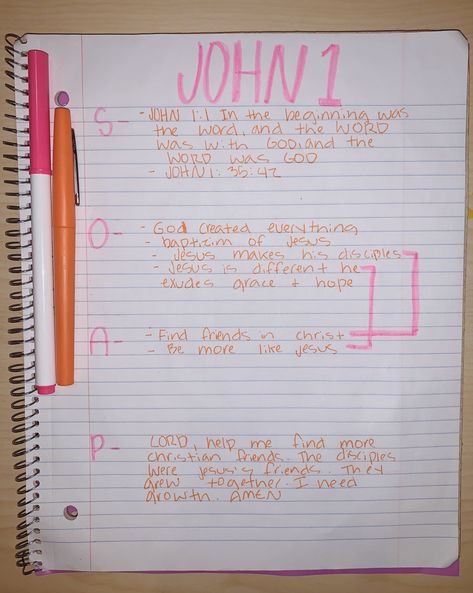 JOHN 1
S- - JOHN 1:1 In the beginning was
the Word, and the WORD
was with GOD, and the
WORD was GOD
- JOHN 1: 35:42
O- - God created everything
- baptizim of Jesus
- Jesus makes his disciples
- Jesus is different he
exudes grace + hope
A- - Find friends in christ
- Be more like Jesus
P- LORD, help me find more
christian friends. The disciples
were Jesus's friends. They
grew together. I need
growth. AMEN